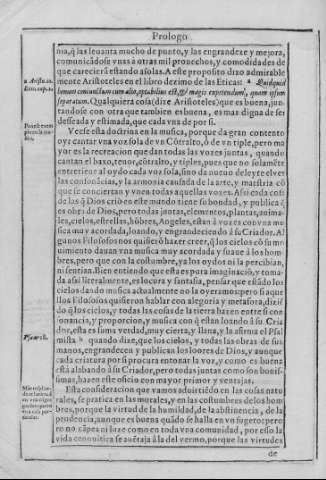 Prologo
ma, q̃ las leuanta mucho de punto, y las engrandeze y mejora,
comunicãdose vnas à otras mil prouechos, y comodidades de
que careciera estando a solas. A este proposito dixo admirable
mente Aristoteles en el libro dezimo de las Eticas: a Quidquid
bonum coniunctum cum alio, optabilius est, & magis expetendum, quam ipsum
separatum. Qualquiera cosa (dize Aristoteles) que es buena, jun-
tandose con otra que tambien es buena, es mas digna de ser
desseada y estimada, que cada vna de por si.
Veese esta doctrina en la musica, porque da gran contento
oyr cantar vna voz sola de vn Cõtralto, ò de vn tiple, pero ma
yor es la recreacion que dan todas las vozes juntas, quando
cantan el baxo, tenor, cõtralto, y tiples, pues que no solamẽte
entretiene al oydo cada voz sola, sino da nueuo deleyte el ver
las consonãcias, y la armonia causada de la arte, y maestria cõ
que se conciertan y vnen todas aquellas vozes. Assi cada cosa
de las q̃ Dios criò en este mundo tiene su bondad, y publica q̃
es obra de Dios, pero todas juntas, elementos, plantas, anima-
les, cielos, estrellas, hõbres, Angeles, estan à vozes con vna mu
sica muy acordada, loando, y engrandeciendo à su Criador. Al
gunos Filosofos nos quisierõ hazer creer, q̃ los cielos cõ su mo
uimiento dauan vna musica muy acordada y suaue à los hom-
bres, pero que con la costumbre, y a los oydos ni la percibian,
ni sentian. Bien entiendo que esta es pura imaginaciõ, y toma-
da assi literalmente, es locura y fantasia, pensar que estãdo los
cielos dando musica actualmente no la oyeramos: pero si aque
llos Filosofos quisieron hablar con alegoria y metafora, diziẽ
dò q̃ los cielos, y todas las cosas de la tierra hazen entre si con
sonancia, y proporcion, y musica con q̃ estan loando à su Cria
dor, esta es suma verdad, muy cierta y llana, y la afirma el Psal
mista b quando dize, que los cielos, y todas las obras de sus
manos, engrandecen y publican los loores de Dios, y aunque
cada criatura por si procura entonar la voz, y como es buena
està alabando à su Criador, pero todas juntas como son bonis-
simas, hazen este oficio con mayor primor y ventajas.
Esta consideracion que vamos aduirtiẽdo en las cosas natu
rales, se pratica en las morales, y en las costumbres de los hom
bres, porque la virtud de la humildad, de la abstinencia, de la
prudencia, aunque es buena quãdo se halla en vn sugeto: pero
de